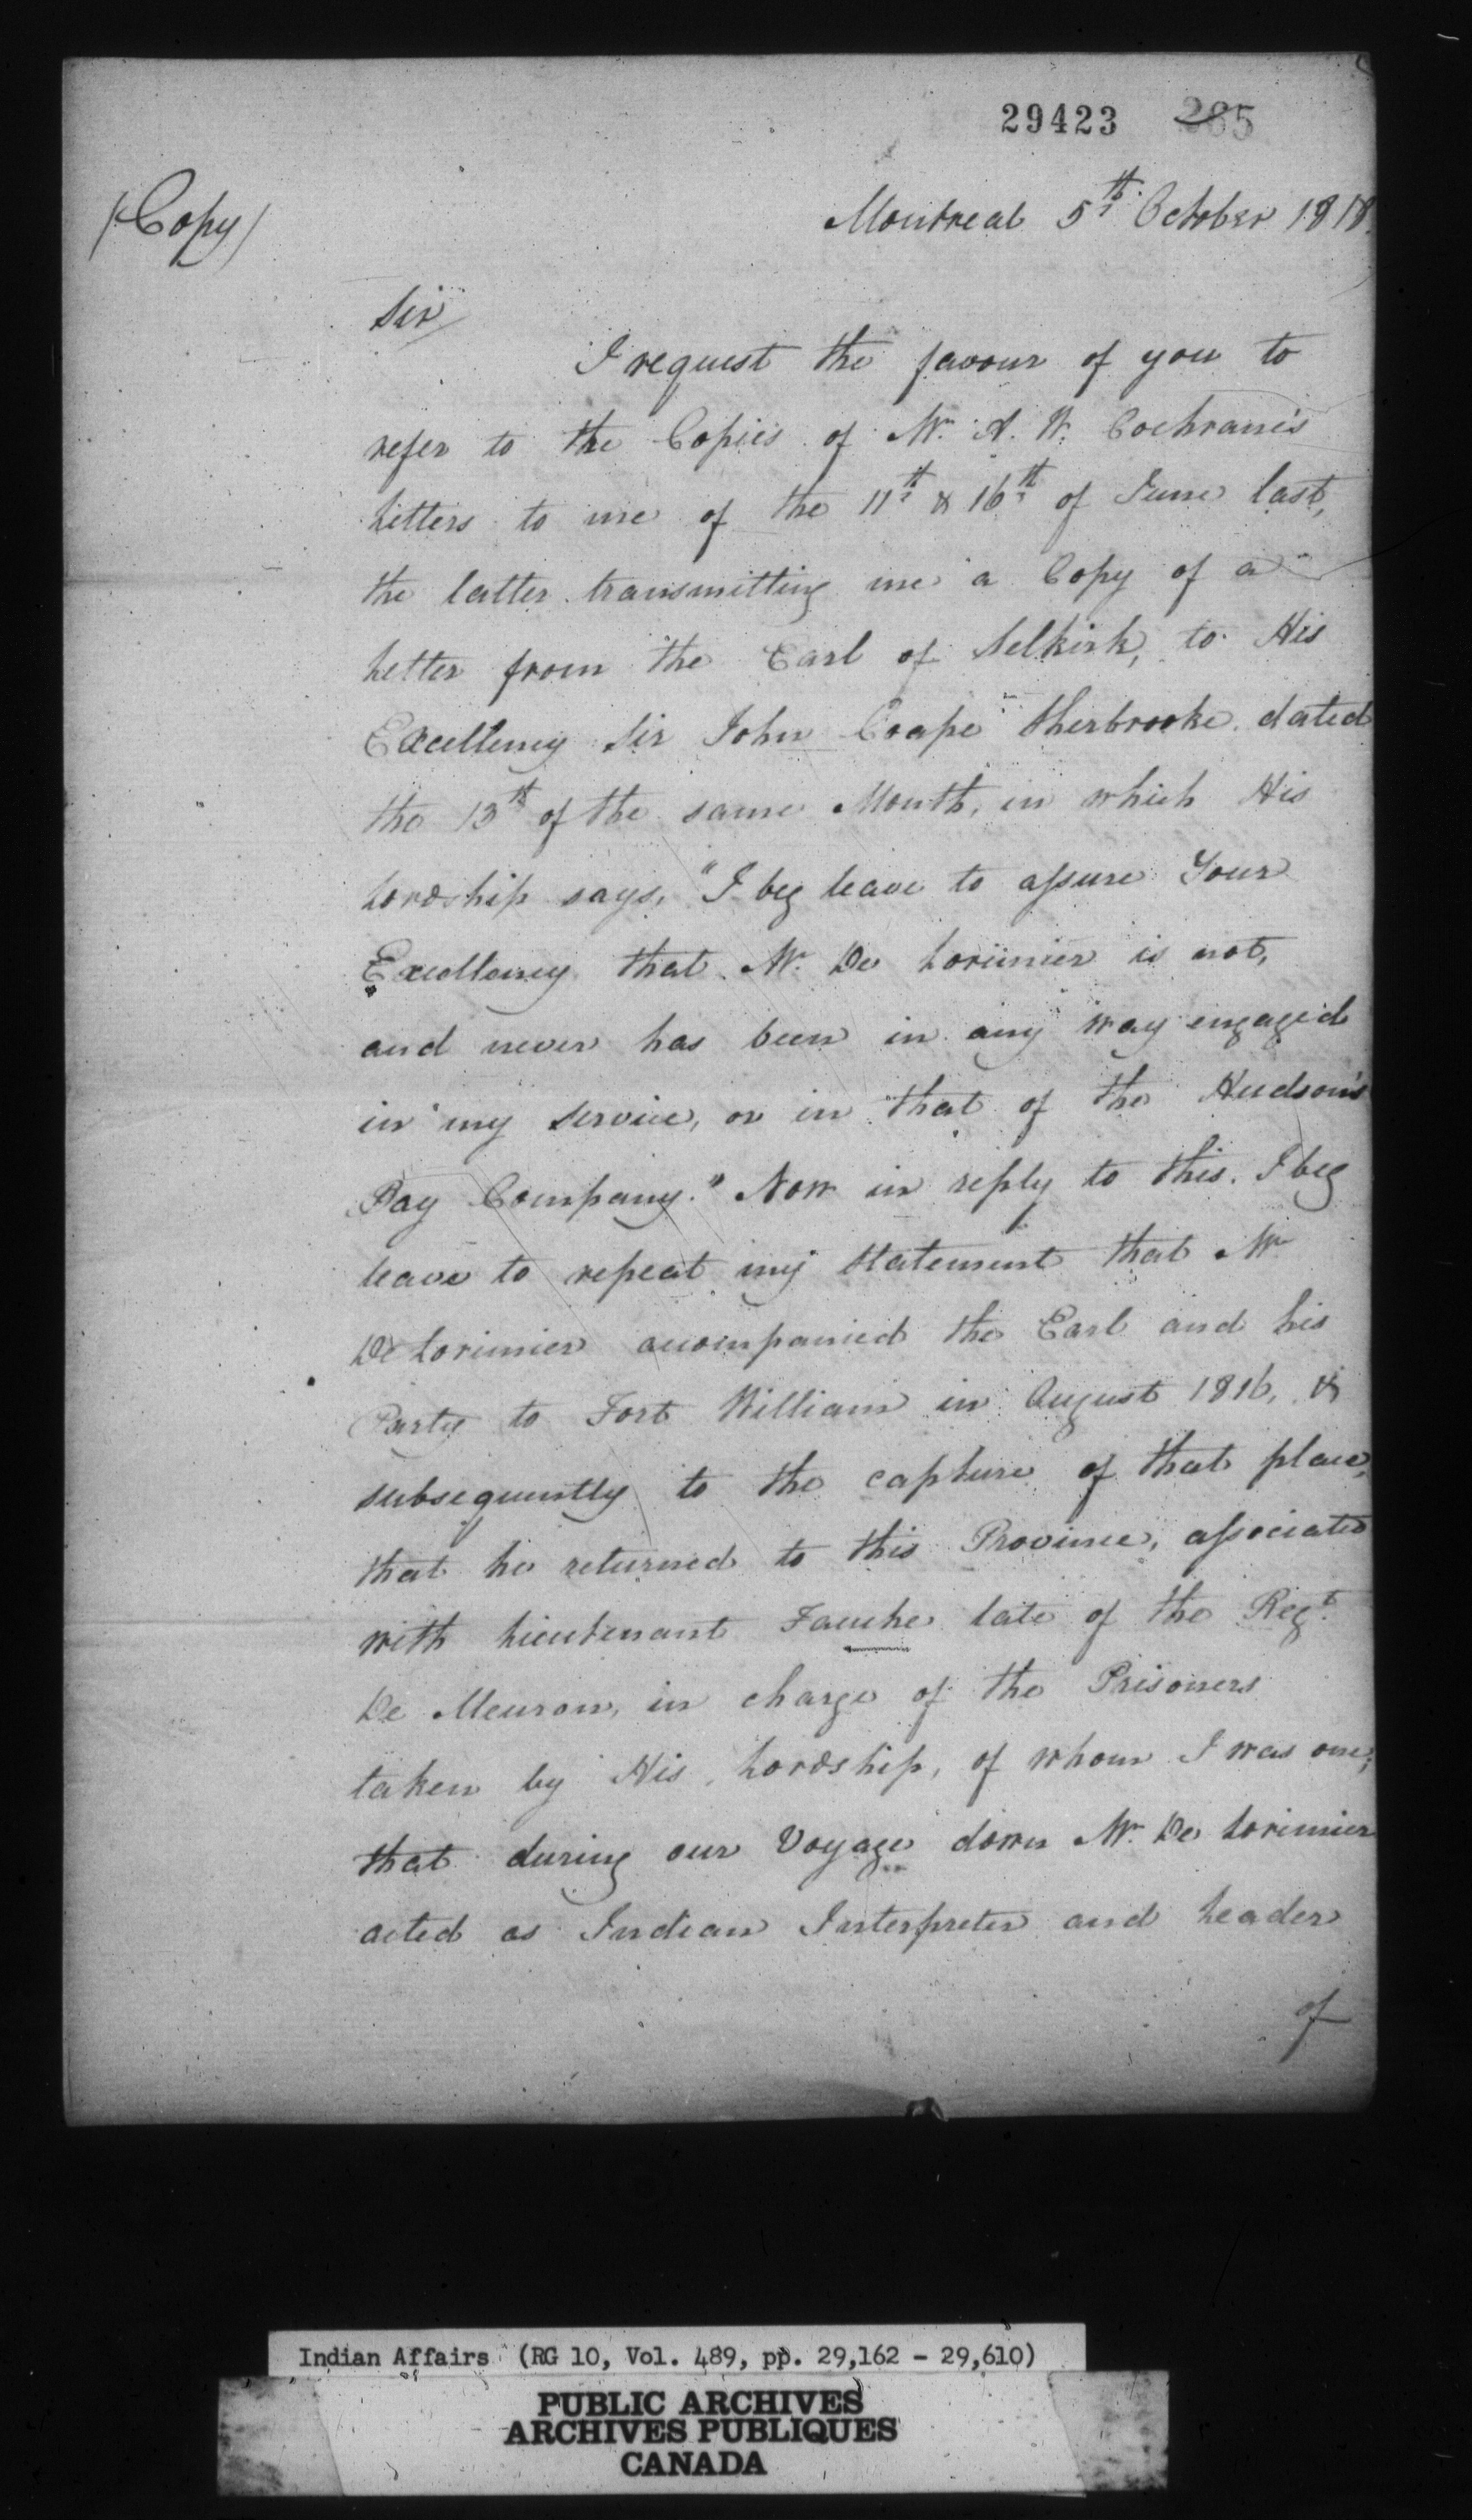 29423 265
(Copy)
Montreal 5th October 1818.
Sir
I request the favour of you to
refer to the Copies of Mr. A. W. Cochran's
Letters to me of the 11th & 16th of June last,
the latter transmitting me a Copy of a
Letter from the Earl of Selkirk, to His
Excellency Sir John Coape Sherbrooke dated
the 13th of the same Month, in which His
Lordship says, "I beg leave to assure Your
Excellency that Mr. De Lorimier is not,
and never has been in any way engaged
in my Service, or in that of the Hudson's
Bay Company." Now in reply to this. I beg
leave to repeat my Statement that Mr
De Lorimier accompanied the Earl and his
Party to Fort William in August 1816, &
subsequently to the capture of that place,
that he returned to this Province, associated
with Lieutenant Fauche late of the Regt.
De Meuron, in charge of the Prisoners
taken by His Lordship, of whom I was one;
that during our Voyage down Mr. De Lorimier
acted as Indian Interpreter and Leader
of
Indian Affairs (RG 10, Vol. 489, pp. 29,162 - 29,610)
PUBLIC ARCHIVES
ARCHIVES PUBLIQUES
CANADA